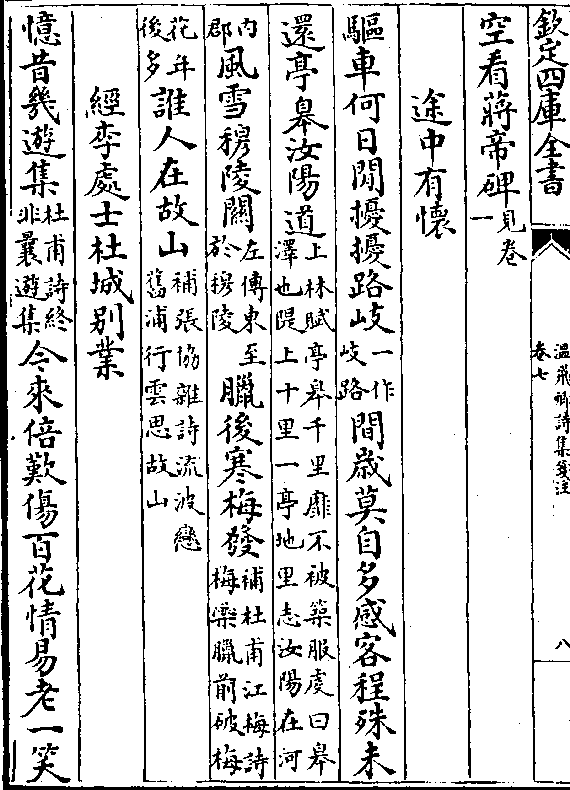 欽定四庫全書
溫飛卿詩集箋注
卷七
八
空看蔣帝碑見卷一
途中有懷
驅車何日閒擾擾路岐一作岐路間歲莫自多感客程殊未
還亭皋汝陽道上林賦亭皋千里靡不被築服虔曰皋澤也隄上十里一亭地里志汝陽在河
內郡風雪穆陵關左傳東至於穆陵臘後寒梅發補杜甫江梅詩梅蘂臘前破梅
花年後多誰人在故山補張協雜詩流波戀舊浦行雲思故山
經李處士杜城別業
憶昔幾遊集杜甫詩終非曩遊集今來倍歎傷百花情易老一笑